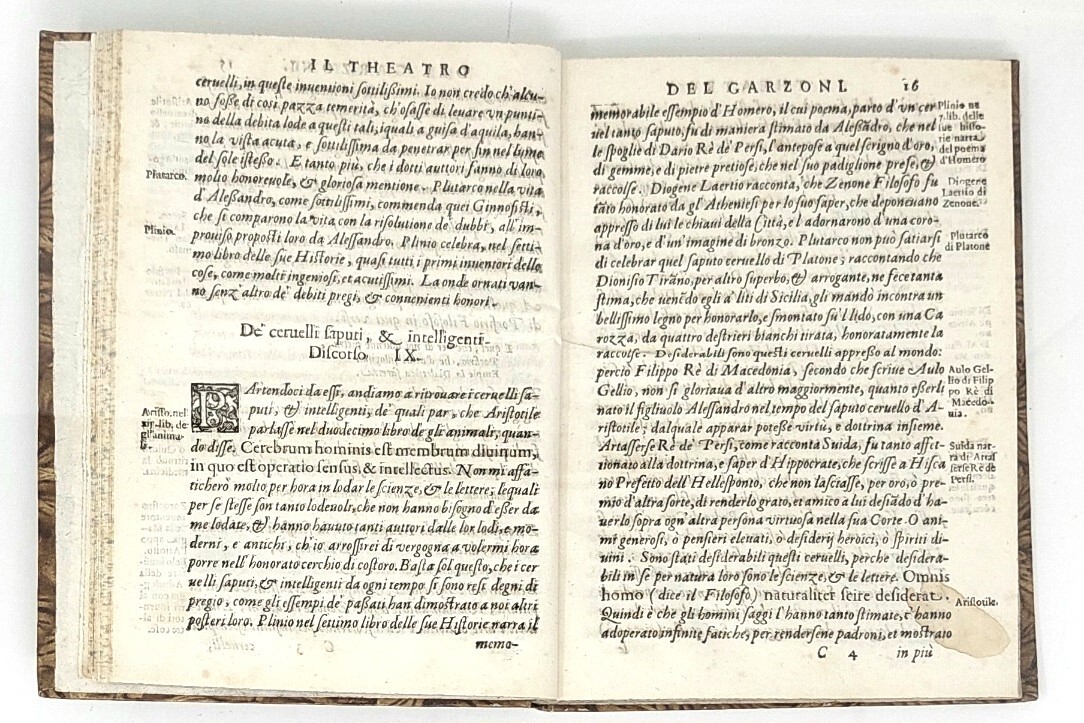 IL THEATRO
ceruelli, in queste inuentioni sottilißimi. Io non credo ch'alcu-
no foße di così pazza temerità, ch'osasse di leuare vn punti-
no della debita lode a questi tali, iquali a guisa d'aquila, han-
no la vista acuta, e sottilissima da penetrar per fin nel lume
del sole isteßo. E tanto più, che i dotti auttori fanno di loro
molto honoreuole, & gloriosa mentione. Plutarco nella vita
Plutarco.
d'Aleßandro, come sottilissimi, commenda quei Ginnosisti,
che si comparono la vita con la risolutione de' dubbi, all'im-
prouiso proposti loro da Alessandro. Plinio celebra, nel setti-
Plinio.
mo libro delle sue Historie, quasi tutti i primi inuentori delle
cose, come molti ingeniosi, et acutissimi. La onde ornati van-
no senz'altro de' debiti pregi, & conuenienti honori.
De' ceruelli saputi, & intelligenti.
Discorso IX.
PArtendoci da essi, andiamo a ritrouare i ceruelli sa-
puti, & intelligenti, de' quali par, che Aristotile
parlasse nel duodecimo libro de gli animali, quan-
Aristo. nel
xij. lib. de
gl'anima
li.
do disse. Cerebrum hominis est membrum diuinum,
in quo est operatio sensus, & intellectus. Non mi affa-
ticherò molto per hora in lodar le scienze, & le lettere, lequali
per se stesse son tanto lodeuoli, che non hanno bisogno d'eßer da
me lodate, & hanno hauuto tanti auttori dalle lor lodi, e mo-
derni, e antichi, ch'io arrossirei di vergogna a volermi hora
porre nell'honorato cerchio di costoro. Basta sol questo, che i cer
uelli saputi, & intelligenti da ogni tempo si sono resi degni di
pregio, come gli essempi de' paßati han dimostrato a noi altri
posteri loro. Plinio nel settimo libro delle sue Historie narra il
C 3
memo-
DEL GARZONI. 16
memorabile essempio d'Homero, il cui poema, parto d'vn cer
uel tanto saputo, fu di maniera stimato da Aleßãdro, che nel
le spoglie di Dario Rè de' Persi, l'antepose a quel scrigno d'oro,
di gemme, e di pietre pretiose, che nel suo padiglione prese, &
raccolse. Diogene Laertio racconta, che Zenone Filosofo fu
Plinio ne
7. lib. delle
sue histo-
rie narra
del poema
d'Homero
Diogene
Laertio di
Zenone.
tãto honorato da gl'Atheniesi per lo suo saper, che deponeuano
appresso di lui le chiaui della Città, e l'adornarono d'una coro-
na d'oro, e d'un'imagine di bronzo. Plutarco non può satiarsi
di celebrar quel saputo ceruello di Platone; raccontando che
Plutarco
di Platone
Dionisio Tirãno, per altro superbo, & arrogante, ne fece tanta
stima, che uenẽdo egli a' liti di Sicilia, gli mandò incontra un
bellissimo legno per honorarlo, e smontato sù'l lido, con una Ca
rozza, da quattro destrieri bianchi tirata, honoratamente la
raccolse. Desiderabili sono questi ceruelli appreßo al mondo:
perciò Filippo Rè di Macedonia, secondo che scriue Aulo
Gellio, non si gloriaua d'altro maggiormente, quanto eßerli
nato il figliuolo Alessandro nel tempo del saputo ceruello d'A-
Aulo Gel-
lio di Filip
po Rè di
Macedo-
nia.
ristotile; dal quale apparar poteße virtù, e dottrina insieme.
Artasserse Rè de' Persi, come racconta Suida, fu tanto affet-
tionato alla dottrina, e saper d'Hippocrate, che scrisse a Hisca
no Prefetto dell'Hellesponto, che non lasciasse, per oro, ò pre-
Suida nar-
ra di Artas
serse Rè de
Persi.
mio d'altra sorte, di renderlo grato, et amico a lui desiãdo d'ha-
uerlo sopra ogn'altra persona virtuosa nella sua Corte. O ani-
mi generosi, ò pensieri eleuati, ò desiderij heroici, ò spiriti di-
uini. Sono stati desiderabili questi ceruelli, perche desidera-
bili in se per natura loro sono le scienze, & le lettere. Omnis
homo (dice il Filosofo) naturaliter scire desiderat.
Aristotile.
Quindi è che gli homini saggi l'hanno tanto stimate, e hanno
adoperato infinite fatiche, per rendersene padroni, et mostrato
C 4 in più